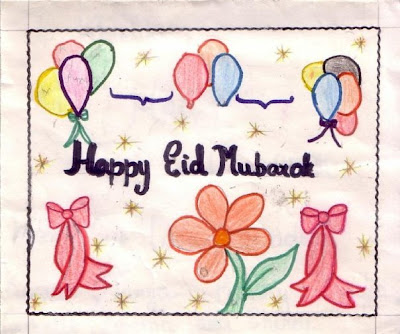 Happy Eid Mubarak